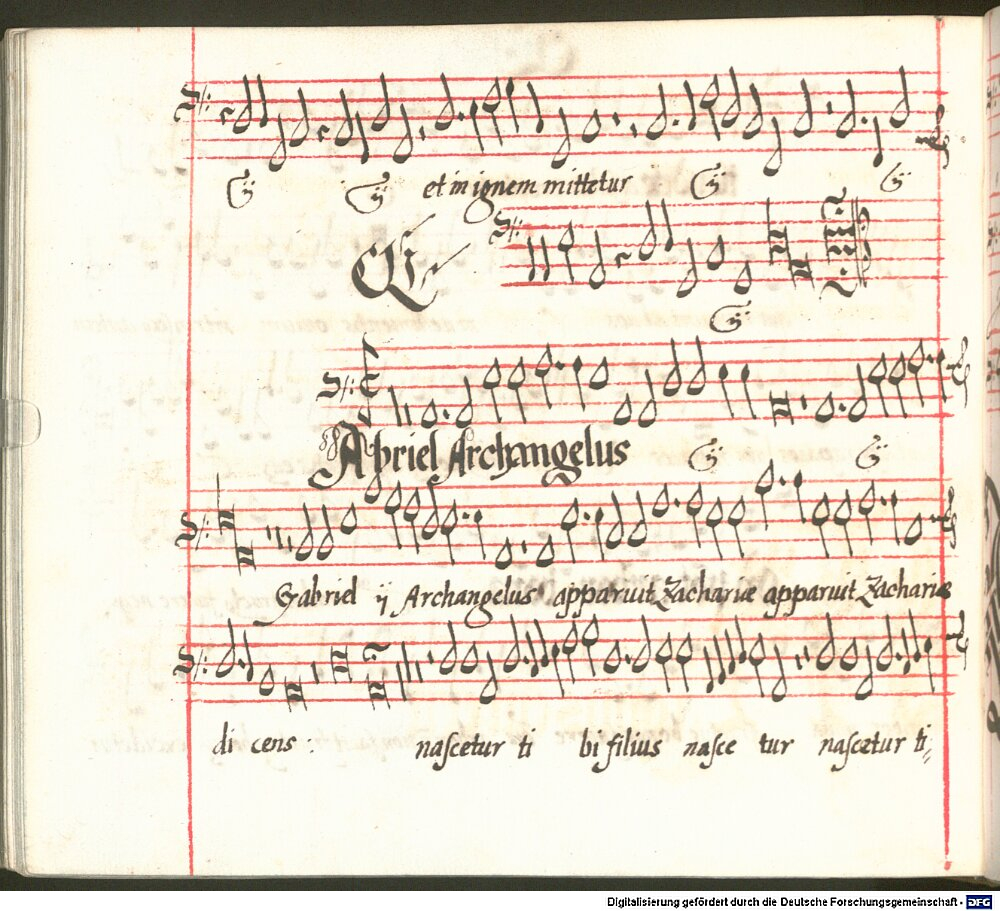 ij ij et in ignem mittetur ij ij
ij
GAbriel Archangelus ij ij
Gabriel ij Archangelus apparuit Zachariæ apparuit Zachariæ
di cens : naſcetur ti bi filius naſce tur naſcetur ti
Digitalisierung gefördert durch die Deutsche Forschungsgemeinschaft - DFG